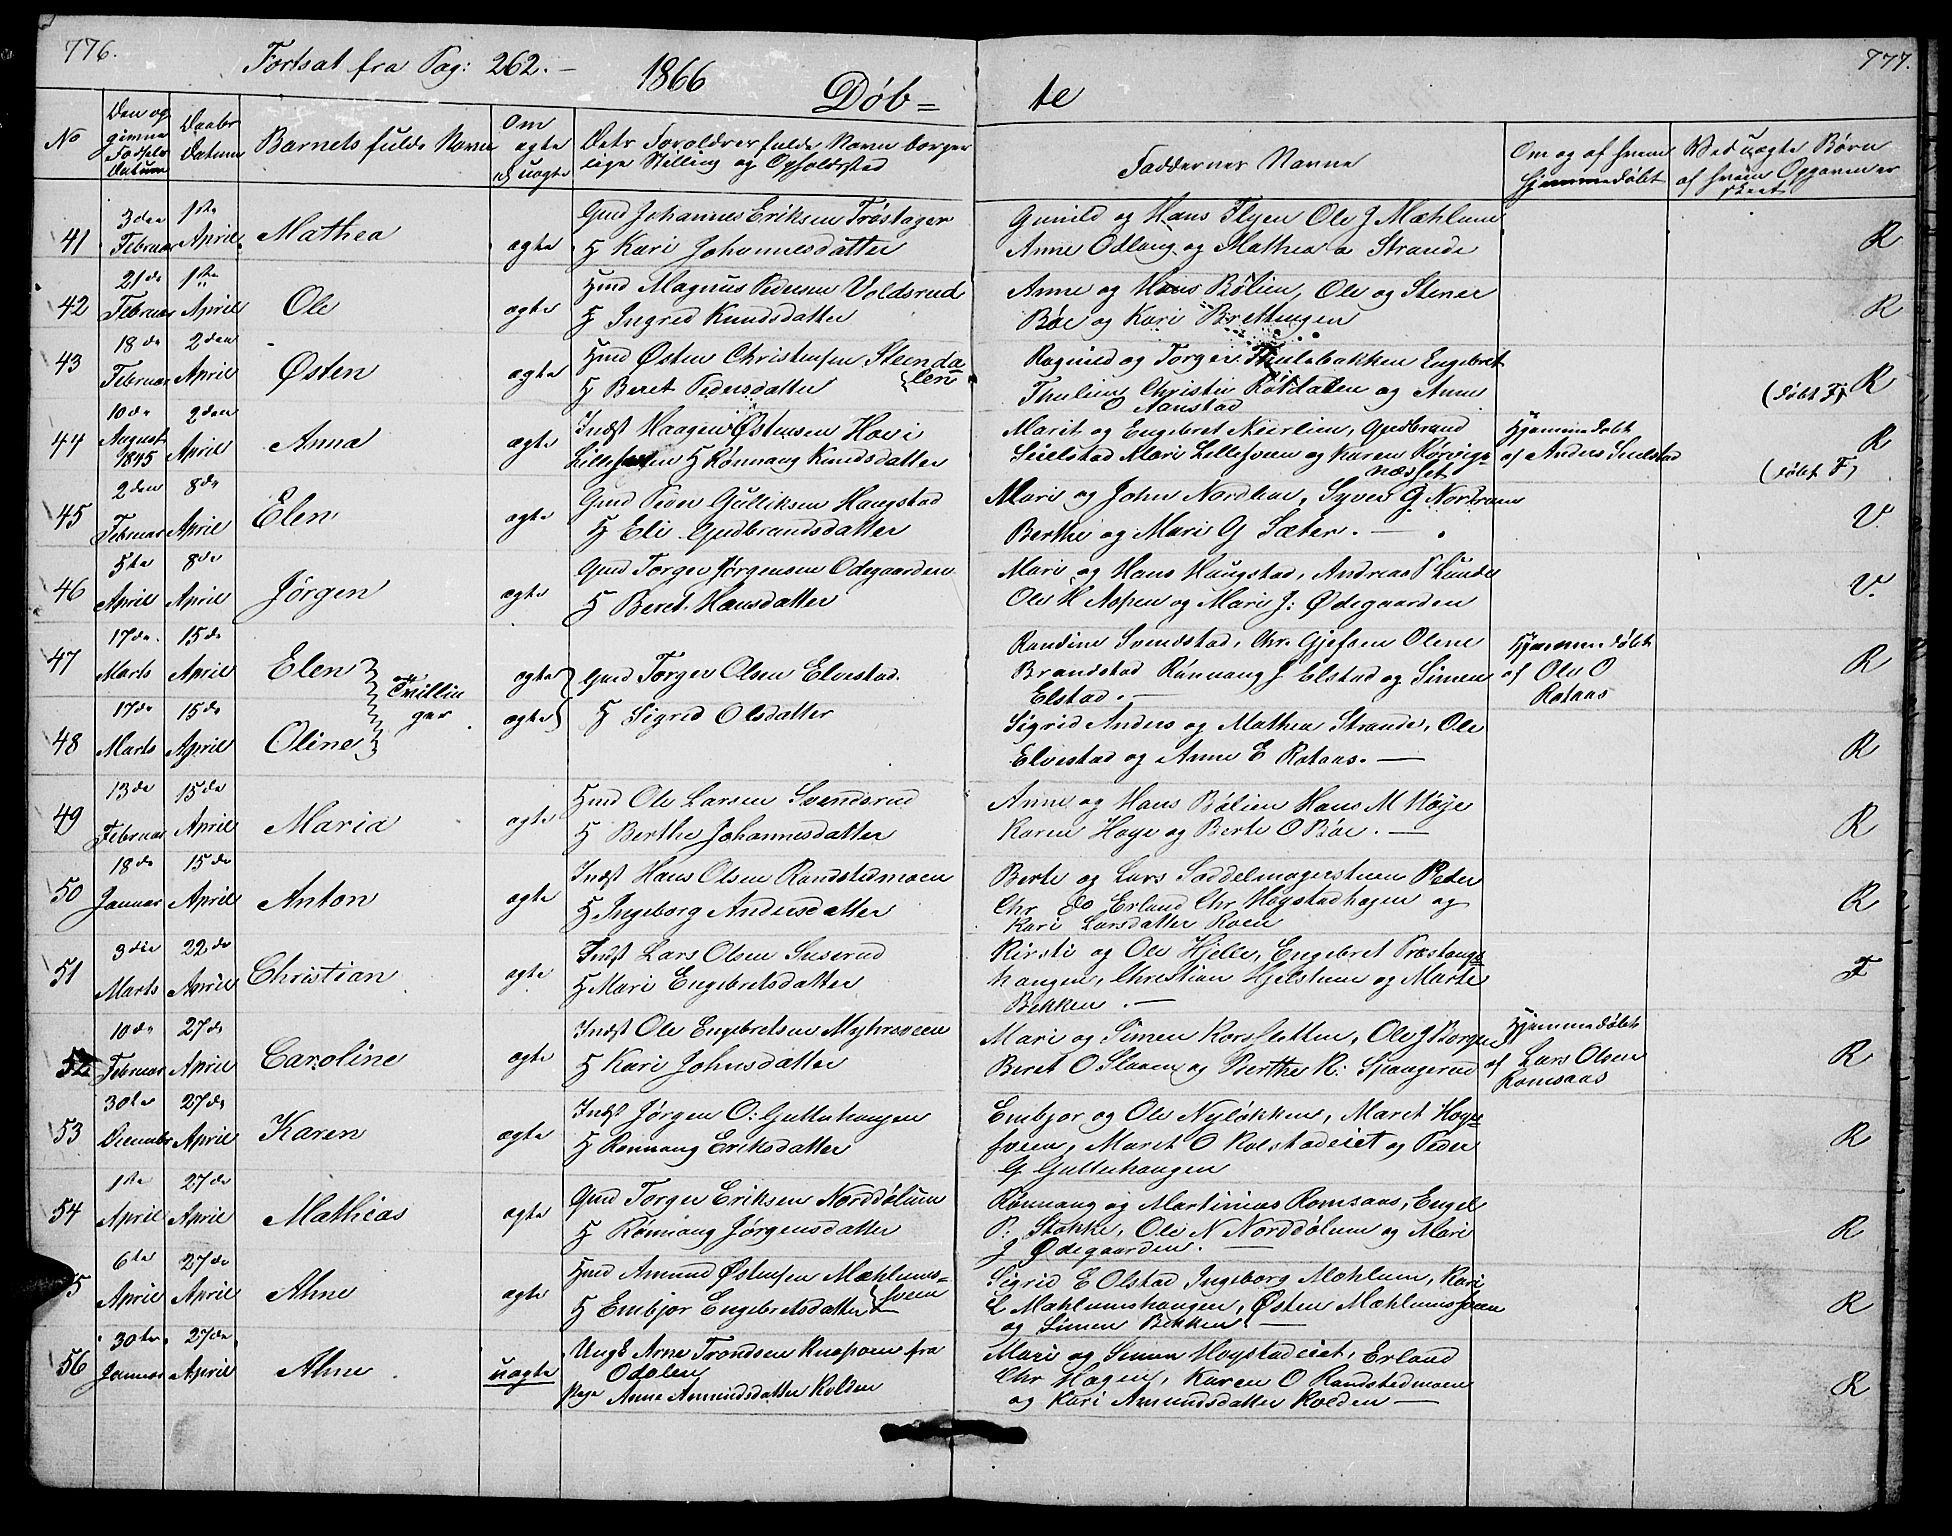 776.
777.
Fortsat fra Pag: 262. —
1866
Døb= te
No
Den og
Fødsels
datum
Daabs
datum
Barnets fulde Navn
Om
ægte
el uægte
Dets Forældres fulde Navn borger
lige Stilling og Opholdssted
Faddernes Navne
Om og af hvem
hjemmedøbt
Ved uægte Børn
af hvem Opgaven er
skeet
41
3die Februar
1ste April
Mathea
ægte
Gmd Johannes Eriksen Trøstager
H Kari Johannesdatter
Gunild og Hans Flyen Ole J Mæhlum
Anne Odlaug og Mathea a Strande
R
42
21de Februar
1ste April
Ole
ægte
Hmd Magnus Pedersen Voldsrud
H Ingrid Knudsdatter
Anne og Hans Bølien, Ole og Stener
Bøe og Kari Brettingen
R
43
18de Februar
2den April
Østen
ægte
Hmd Østen Christensen Steenda
len
H Beret Pedersdatter
Ragnild og Torger Thulebakken Engebret
Thulien Christen Rötdalen og Anne
O Aanstad
(døbt F)
R
44
10de August 1845
2den April
Anna
ægte
Indst Haagen Østensen Hovi
H Rønnaug Knudsdatter
Marit og Engebret Neerlien, Gudbrand
Sielstad Mari Lillesveen og Karen Kørvigs-
næsset
Hjemmedøbt
af Anders Sielstad
(døbt F)
R
45
2den Februar
8de April
Elen
ægte
Gmd Peder Gulliksen Haugstad
H Eli Gudbrandsdatter
Mari og John Nordlien, Syver G. Nordrum
Berthe og Mari G Sæter. —
V.
46
5te April
8de April
Jørgen
ægte
Gmd Torger Jørgensen Odegaarden
H Beret Hansdatter
Mari og Hans Haugstad, Andreas P Lunde
Ole H Aspen og Mari J: Ødegaarden
V.
47
17de Marts
15de April
Elen
Tvillin
ger
ægte
Gmd Torger Olsen Elvestad.
H Sigrid Olsdatter
Randine Svendstad, Chr. Gjefsen Olene
Brandstad Rønnaug J. Elstad og Simen
Elstad. —
Hjemmedøbt
af Ole O
Rotaas
R
48
17de Marts
15de April
Oline
ægte
Sigrid Anders og Mathea Strande, Ole
Elvestad og Anne E Rotaas. —
R
49
13de Februar
15de April
Maria
ægte
Hmd Ole Larsen Svendsrud
H Berthe Johannesdatter
Anne og Hans Bølien Hans M Høje
Karen Høye og Berte O Bøe. —
R
50
18de Januar
15de April
Anton
ægte
Indst Hans Olsen Randstedmoen
H Ingeborg Andersdatter
Berte og Lars Saddelmagerstuen Peder
Chr do Erland Chr Høgstadhagen og
Kari Larsdatter Roen
R
51
3die Marts
22de April
Christian
ægte
Indst Lars Olsen Suserud
H Mari Engebretsdatter
Kirsti og Ole Hjelle, Engebret Præstengs-
haugen, Christian Hjelstuen og Marte
Bekken. —
F
52
10de Februar
27de April
Caroline
ægte
Indst Ole Engebretsen Myhrsveen
H Kari Johnsdatter
Mari og Simen Korssletten, Ole J Borgen
Beret O Slaaen og Berthe R: Spangerud
Hjemmedøbt
af Lars Olsen
Romsaas
R
53
30te December
27de April
Karen
ægte
Indst Jørgen O: Gutterhaugen
H Rønnaug Eriksdatter
Embjor og Ole Nyløkken, Maret Høye-
sveen, Maret O Kolstadeiet og Peder
G Gutterhaugen
R
54
1ste April
27de April
Mathias
ægte
Gmd Torger Eriksen Norddølum
H Rønnaug Jørgensdatter
Rønnaug og Martinius Romsaas, Engel
P: Stokke, Ole N Norddølum og Mari
J Ødegaarden. —
R
55
6te April
27de April
Ahne
ægte
Hmd Amund Østensen Mæhlums-
sveen
H Embjør Engebretsdatter
Sigrid E Olstad Ingeborg Mæhlum, Kari
L Mæhlumshaugen, Østen Mæhlumssveen
og Simen Bekken —
R
56
30te Januar
27de April
Ahne
uægte
Ungk Arne Trondsen Knapom fra
Odalen
Pige Anne Amundsdatter Kolden
Mari og Simen Høystadeiet, Erland
Chr Hagen, Karen O Randstedmoen
og Kari Amundsdatter Kolden —
R